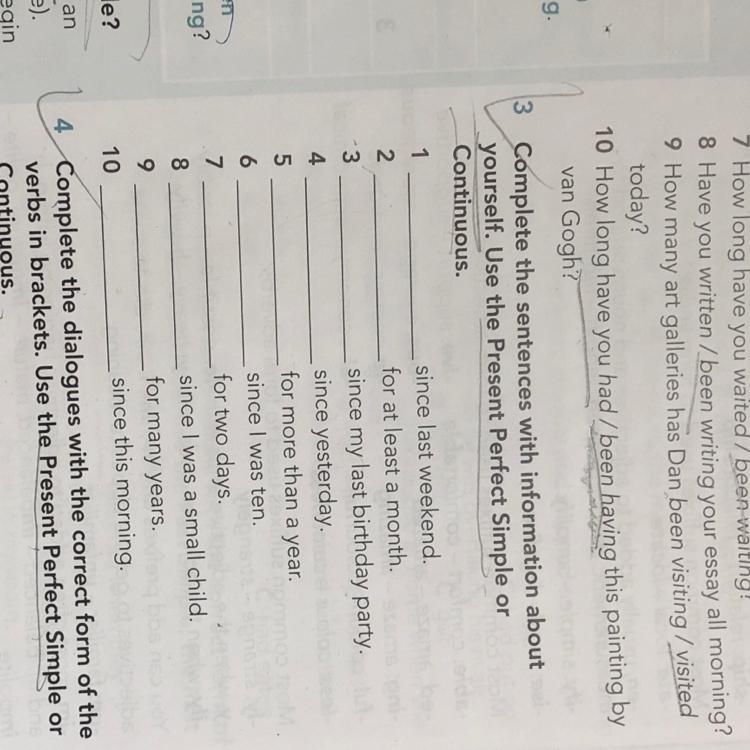 7 How long have you waited / been waiting?
8 Have you written / been writing your essay all morning?
9 How many art galleries has Dan been visiting / visited
today?
10 How long have you had / been having this painting by
van Gogh?
3 Complete the sentences with information about
yourself. Use the Present Perfect Simple or
Continuous.
1 ____________ since last weekend.
2 ____________ for at least a month.
3 ____________ since my last birthday party.
4 ____________ since yesterday.
5 ____________ for more than a year.
6 ____________ since I was ten.
7 ____________ for two days.
8 ____________ since I was a small child.
9 ____________ for many years.
10 ____________ since this morning.
4 Complete the dialogues with the correct form of the
verbs in brackets. Use the Present Perfect Simple or
Continuous.
g.
en
ng?
le?
an
e).
egin